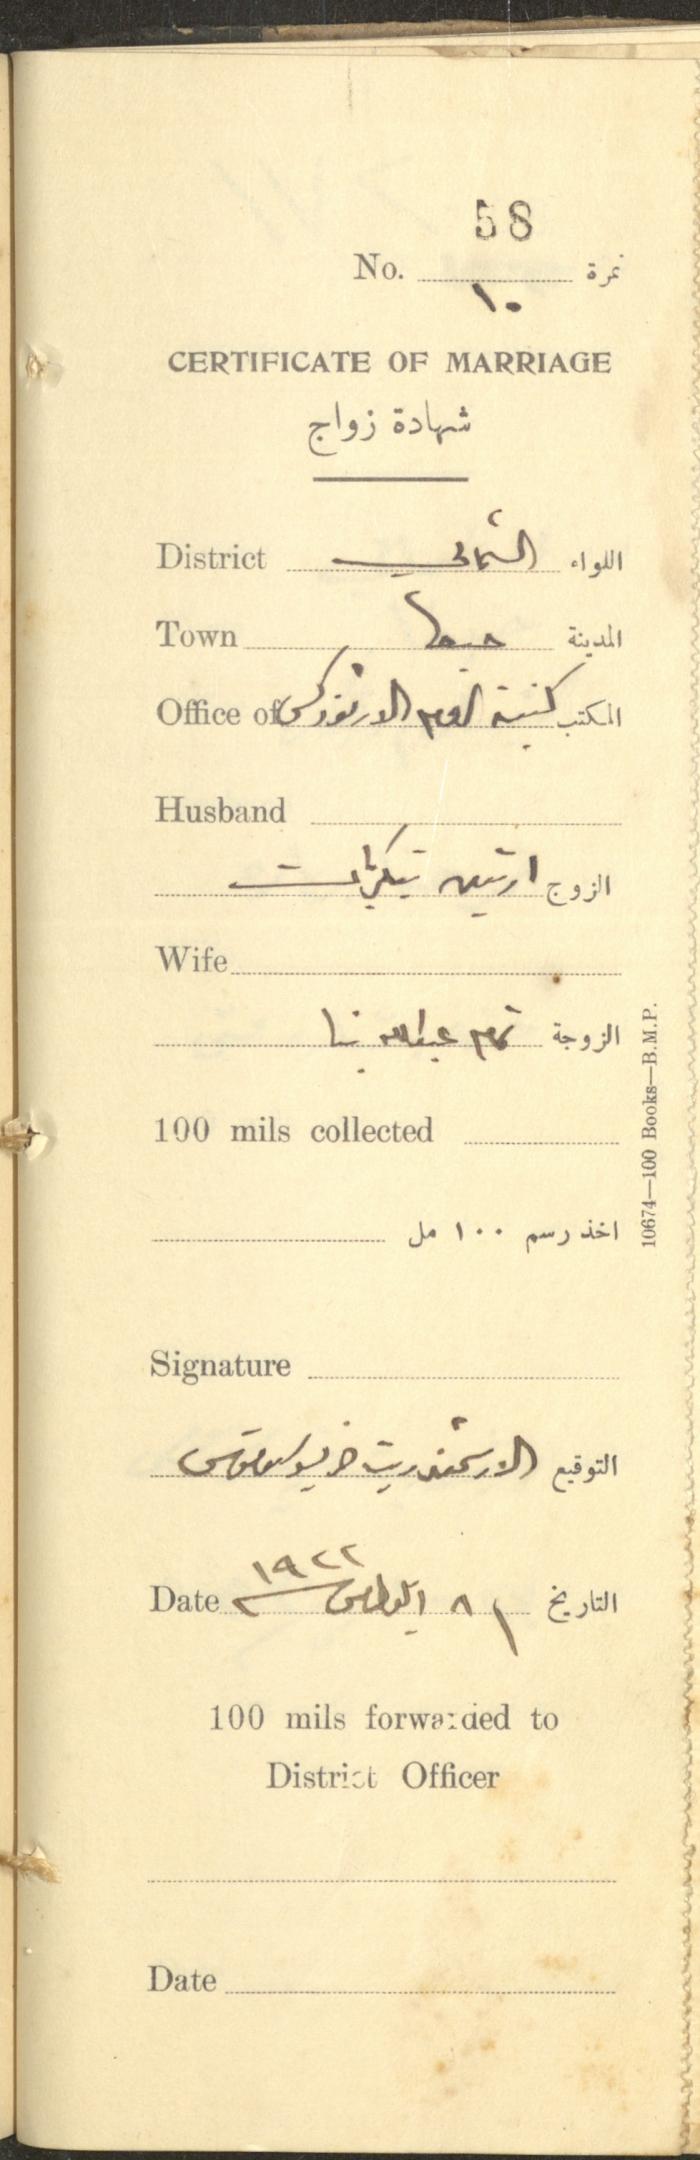 58
No. نمرة
١٠
CERTIFICATE OF MARRIAGE
شهادة زواج
District الشمالي اللواء
Town حيفا المدينة
Office of كنيسة الروم الارثوذكس المكتب
Husband
ارتين الزوج
Wife
تمام عبدالله الزوجة
100 mils collected
اخذ رسم ١٠٠ مل
Signature
الارشمندريت التوقيع
Date ٨ ١٩٢٢ التاريخ
100 mils forwarded to
District Officer
Date
10674—100 Books—B.M.P.